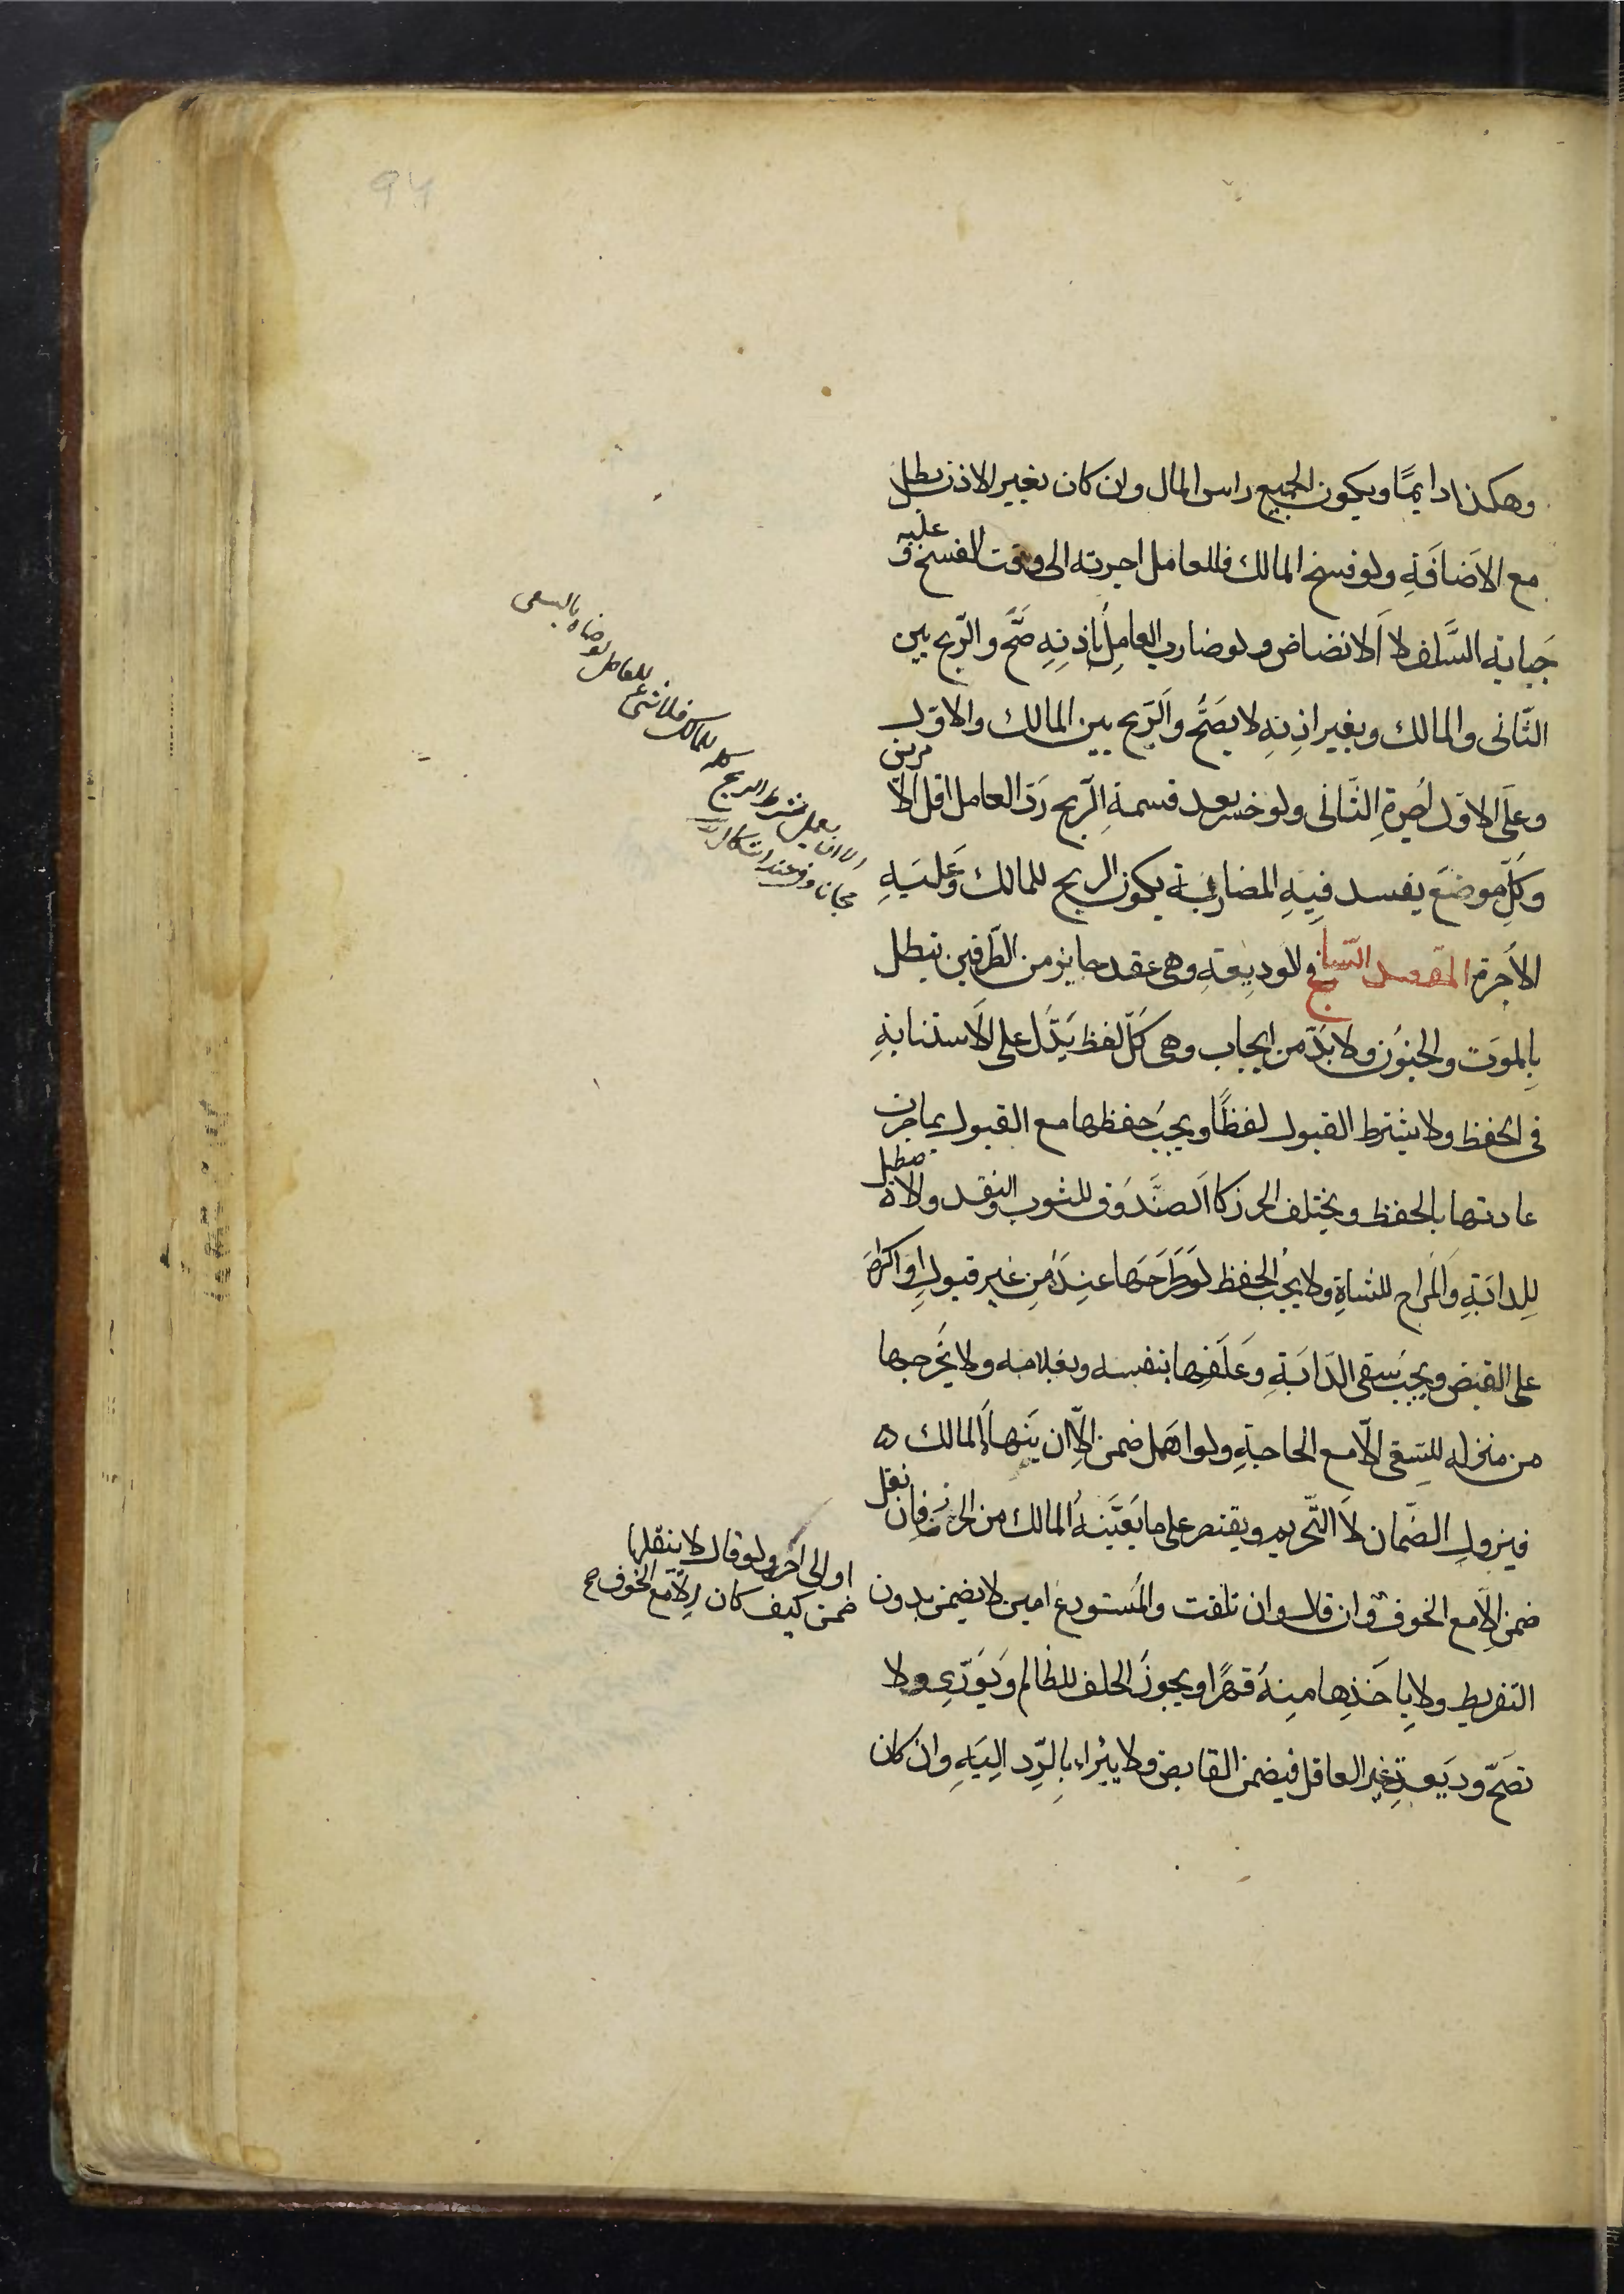 وهكذا دايمًا ويكون الجميع راس المال وان كان بغير الاذن بطل
مع الاَضافَةِ ولو فسخ المالك فللعامل اجرته الى وقت الفسخ و عليه
جَبايه السَّلف لا اَلانضاض ولو ضارب العامِلُ باِذنِهِ صَحَّ والرّبح بين
الثّانى والمالك وبغير اذنِهِ لا يصَحُّ والَرّبح بين المالك والاوّل
وعَلَى الاوّل اُجرةِ الثّانى ولو خسر بعد قسمةِ الرّبح رَدّ العامل اقل الاَمرين
وكلّ موضعَ يفسد فيِهِ المضاربَة يكون الربح للمالك وَعَليَهِ
الاُجرة المقصد السّابع فى الوديعَةِ وهى عقد جايز من الطَّرفين تبطل
بِالموَت والجنوُن ولا بَدّ من ايجاب وهى كَلّ لفظ يَدَّل على الاَستنابةِ
فى الحفظ ولا يشترط القبول لفظًا ويجبُ حفظها مع القبول بما جرت
عادتها بالحفظ ويختلف الحرز كا اَلصنَّدوَق للثوب والنقد والاصطبل
لِلدابَةِ واَلمَراح للشاةِ ولا يجُب الحفظ لوَ طَرَحَهَا عنِدَه مِن غير قبولِ اوَ اكرَهَ
على القبض ويجب سَقى الدَابَةِ وعَلَفِها بنفسه وبغلامه ولا يُخرجها
من منزله للسِقى الاّ مع الحاجةِ ولو اهمل ضمن الاّ ان يَنَهاهُ المالك
فيزول الضّمان لاَ التّحريم ويقتصر على ما يُعَيّنَهُ المالك من الحرز فان نقل
ضمن الاِّ مع الخوف وان قال وان تلفت والمُستودع امين لا يضمن بدون
التفريط ولا باِخَذِها مِنهُ قهرًا ويجوزُ الحلف للظالم وَيُوَرّى ولا
تصَحّ وديَعةِ غير العاقل فيضمن القابض ولا يبُراء بِالرّد اِليَهِ وان كان
الا ان يعمل بشرط الربح كله للمالك فلا شئ للعامل لرضاه بالسعى
مجانا وفى عنده اشكال
او الى احرز ولو قال لا ينقلها
ضمن كيف كان الاّ مع الخوف صح